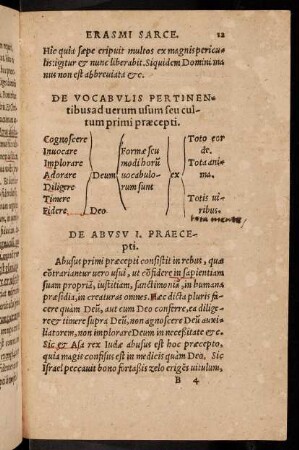 ERASMI SARCE. 12
Hîc quia sæpe eripuit multos ex magnis pericu
lis: igitur & nunc liberabit. Siquidem Domini ma
nus non est abbreuiata &c.
DE VOCABVLIS PERTINEN-
tibus ad uerum usum seu cul-
tum primi præcepti.
Cognoscere
Inuocare
Implorare
Adorare
Diligere
Timere
Fidere
Deum
Deo
Formæ seu
modi horũ
uocabulo-
rum sunt
ex
Toto cor
de.
Tota ani-
ma.
Totis ui-
ribus.
tota mente
DE ABVSV I. PRAECE-
pti.
Abusus primi præcepti consistit in rebus, quæ
cõtrariantur uero usui, ut cõfidere in sapientiam
suam propriã, iustitiam, sanctimoniã, in humana
præsidia, in creaturas omnes. Hæc dicta pluris fa
cere quàm Deũ, aut cum Deo conferre, ea dilige-
re & timere supra Deũ, non agnoscere Deũ auxi-
liatorem, non implorare Deum in necessitate &c.
Sic & Asa rex Iudæ abusus est hoc præcepto,
quia magis confisus est in medicis quàm Deo. Sic
Israel peccauit bono fortaßis zelo erigẽs uitulum,
B 4